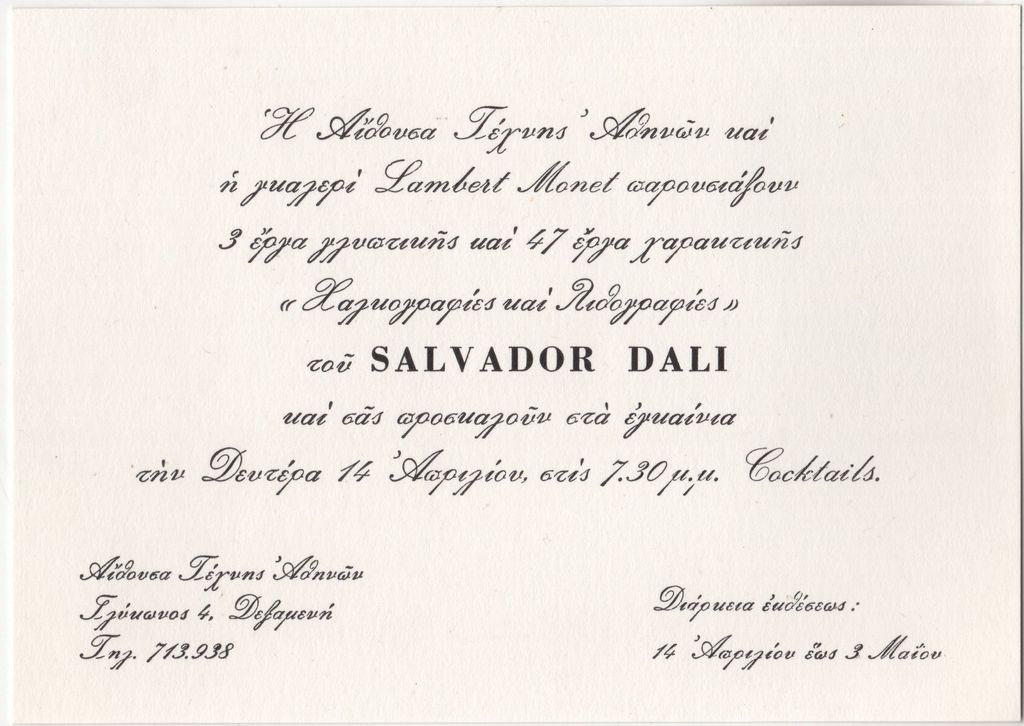 Ἡ Αἴθουσα Τέχνης Ἀθηνῶν καί
ἡ γκαλερί Lambert Monet παρουσιάζουν
3 ἔργα γλυπτικῆς καί 47 ἔργα χαρακτικῆς
«Χαλκογραφίες καί Λιθογραφίες»
τοῦ SALVADOR DALI
καί σᾶς προσκαλοῦν στὰ ἐγκαίνια
τὴν Δευτέρα 14 Ἀπριλίου, στὶς 7.30 μ.μ. Cocktails.
Αἴθουσα Τέχνης Ἀθηνῶν
Γλύκωνος 4, Δεξαμενή
Τηλ. 713.938
Διάρκεια ἐκθέσεως:
14 Ἀπριλίου ἕως 3 Μαΐου